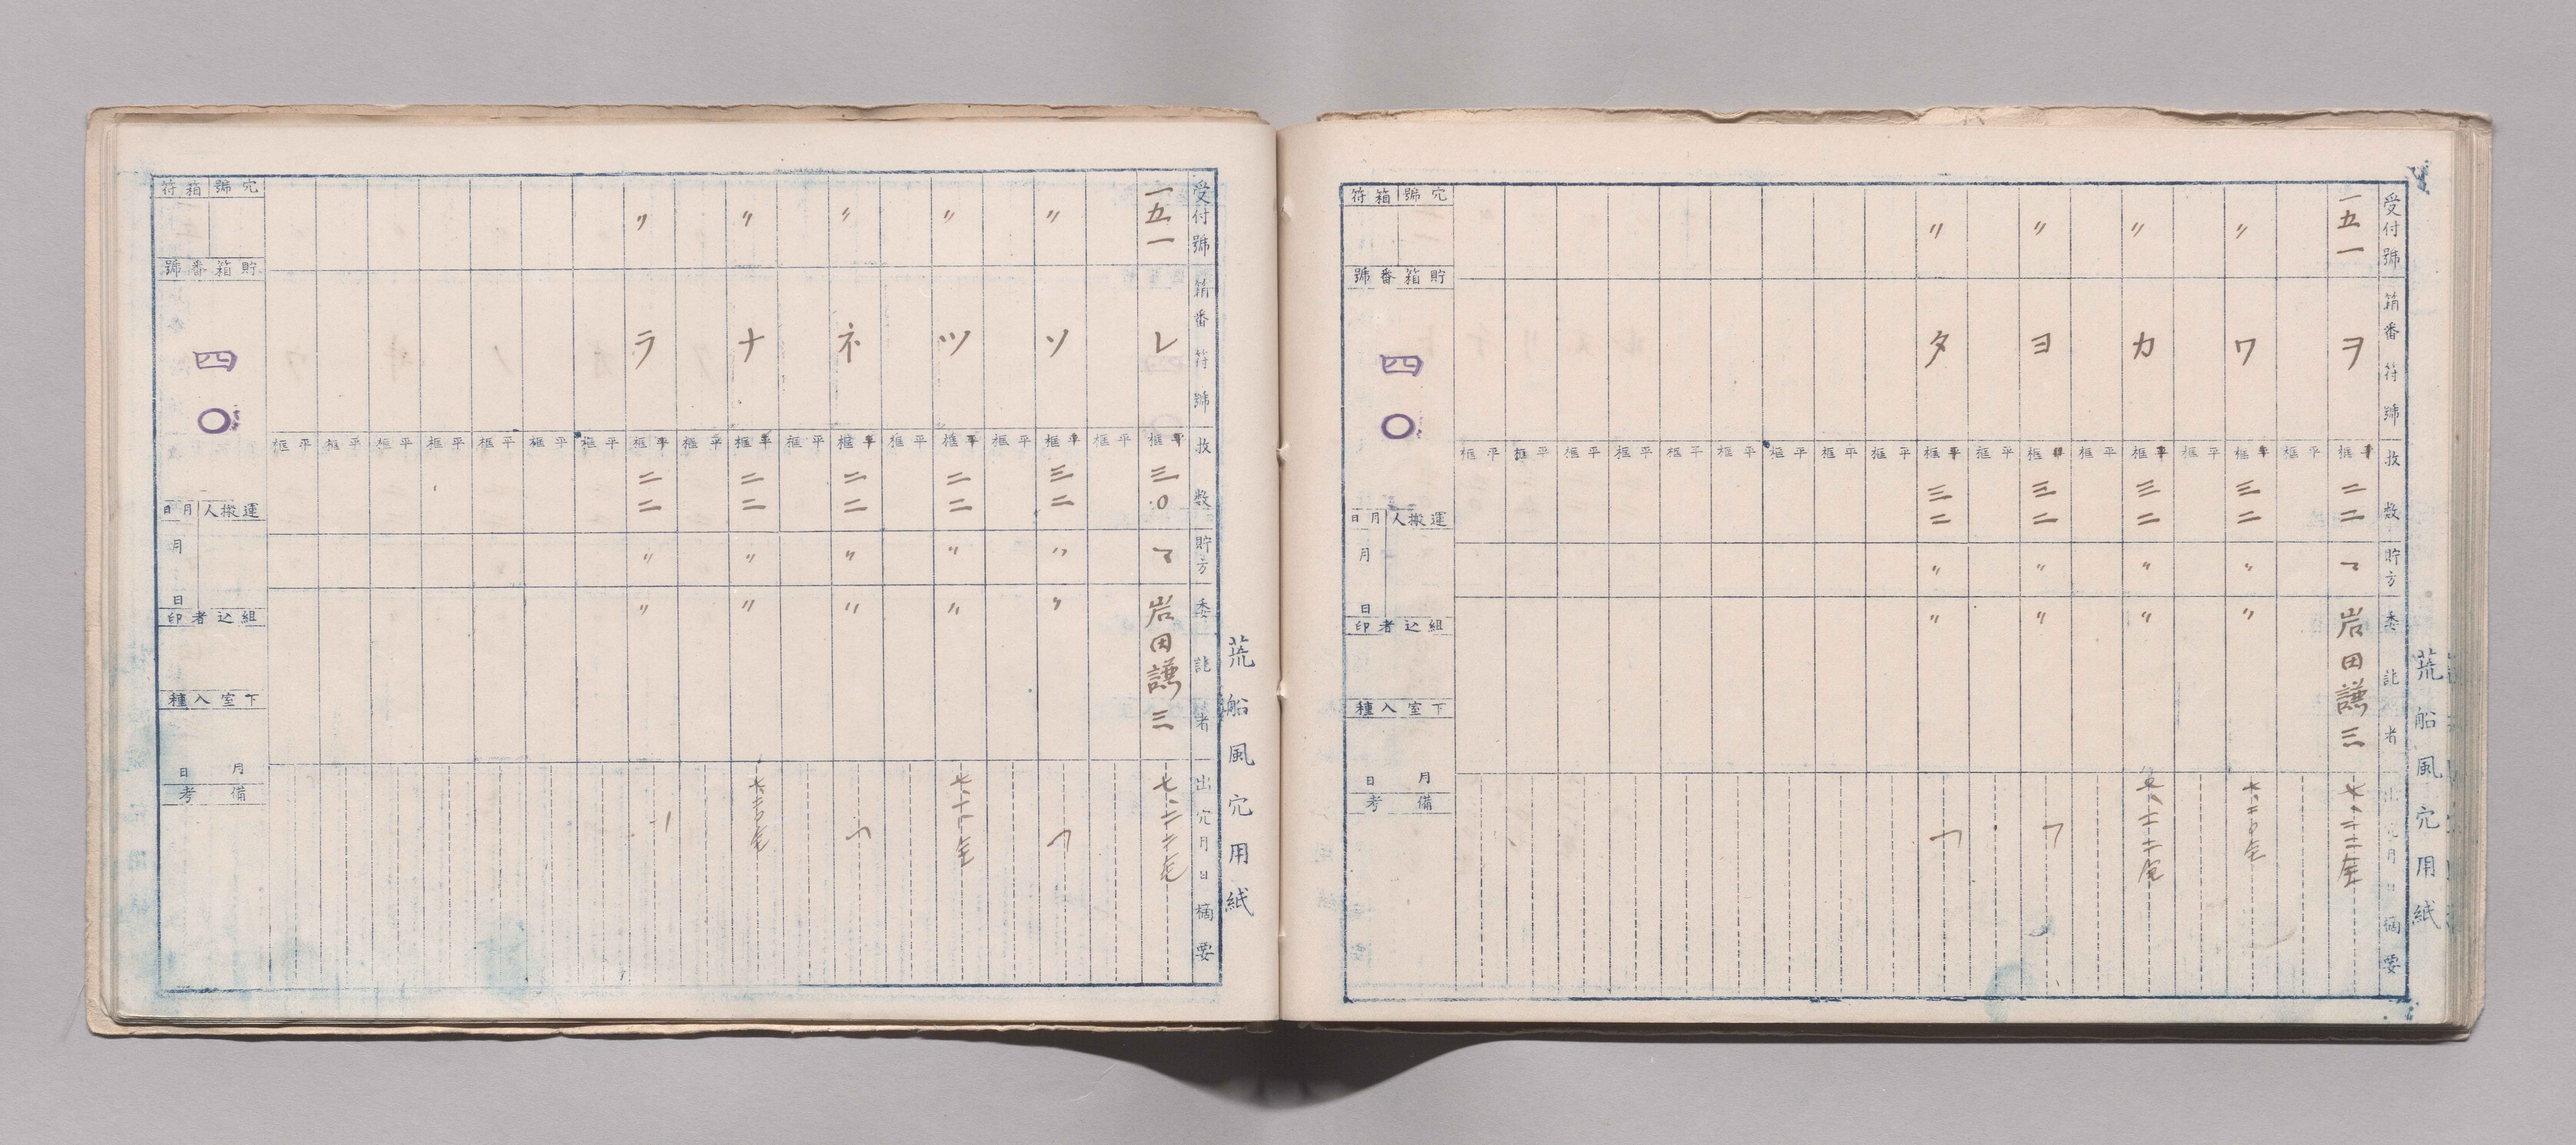 荒船風穴用紙
受付號 箱番符號 枚数 貯方 委託者 出穴月日 摘要
一五一 ヲ 平框 二二 岩田謙三
平框
〃 ワ 平框 三二 〃 〃
平框
〃 カ 平框 三二 〃 〃
平框
〃 ヨ 平框 三二 〃 〃
平框
〃 タ 平框 三二 〃 〃
平框
平框
平框
平框
平框
平框
平框
平框
平框
穴號 箱符
貯箱番號
四〇
運搬人 月日
月 日
組込者印
下室入種
月 日
備考
荒船風穴用紙
受付號 箱番符號 枚数 貯方 委託者 出穴月日 摘要
一五一 レ 平框 三〇 岩田謙三
平框
〃 ソ 平框 三二 〃 〃
平框
〃 ツ 平框 二二 〃 〃
平框
〃 ネ 平框 二二 〃 〃
平框
〃 ナ 平框 二二 〃 〃
平框
〃 ラ 平框 二二 〃 〃
平框
平框
平框
平框
平框
平框
平框
穴號 箱符
貯箱番號
四〇
運搬人 月日
月 日
組込者印
下室入種
月 日
備考